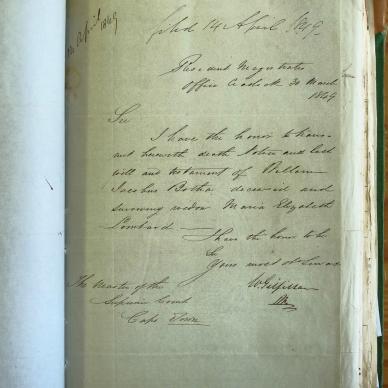 14 April 1849
filed 14 April 1849.
Resident Magistrates
Office Cradock 30 March
1849
Sir
I have the honor to trans-
mit herewith death Notice and last
will and testament of Willem
Jacobus Botha deceased and
surviving widow Maria Elizabeth
Lombard
I have the honor to be
Sir
Your most obt Servant
W Gilfillan
The Master of the
Supreme Court
Cape Town